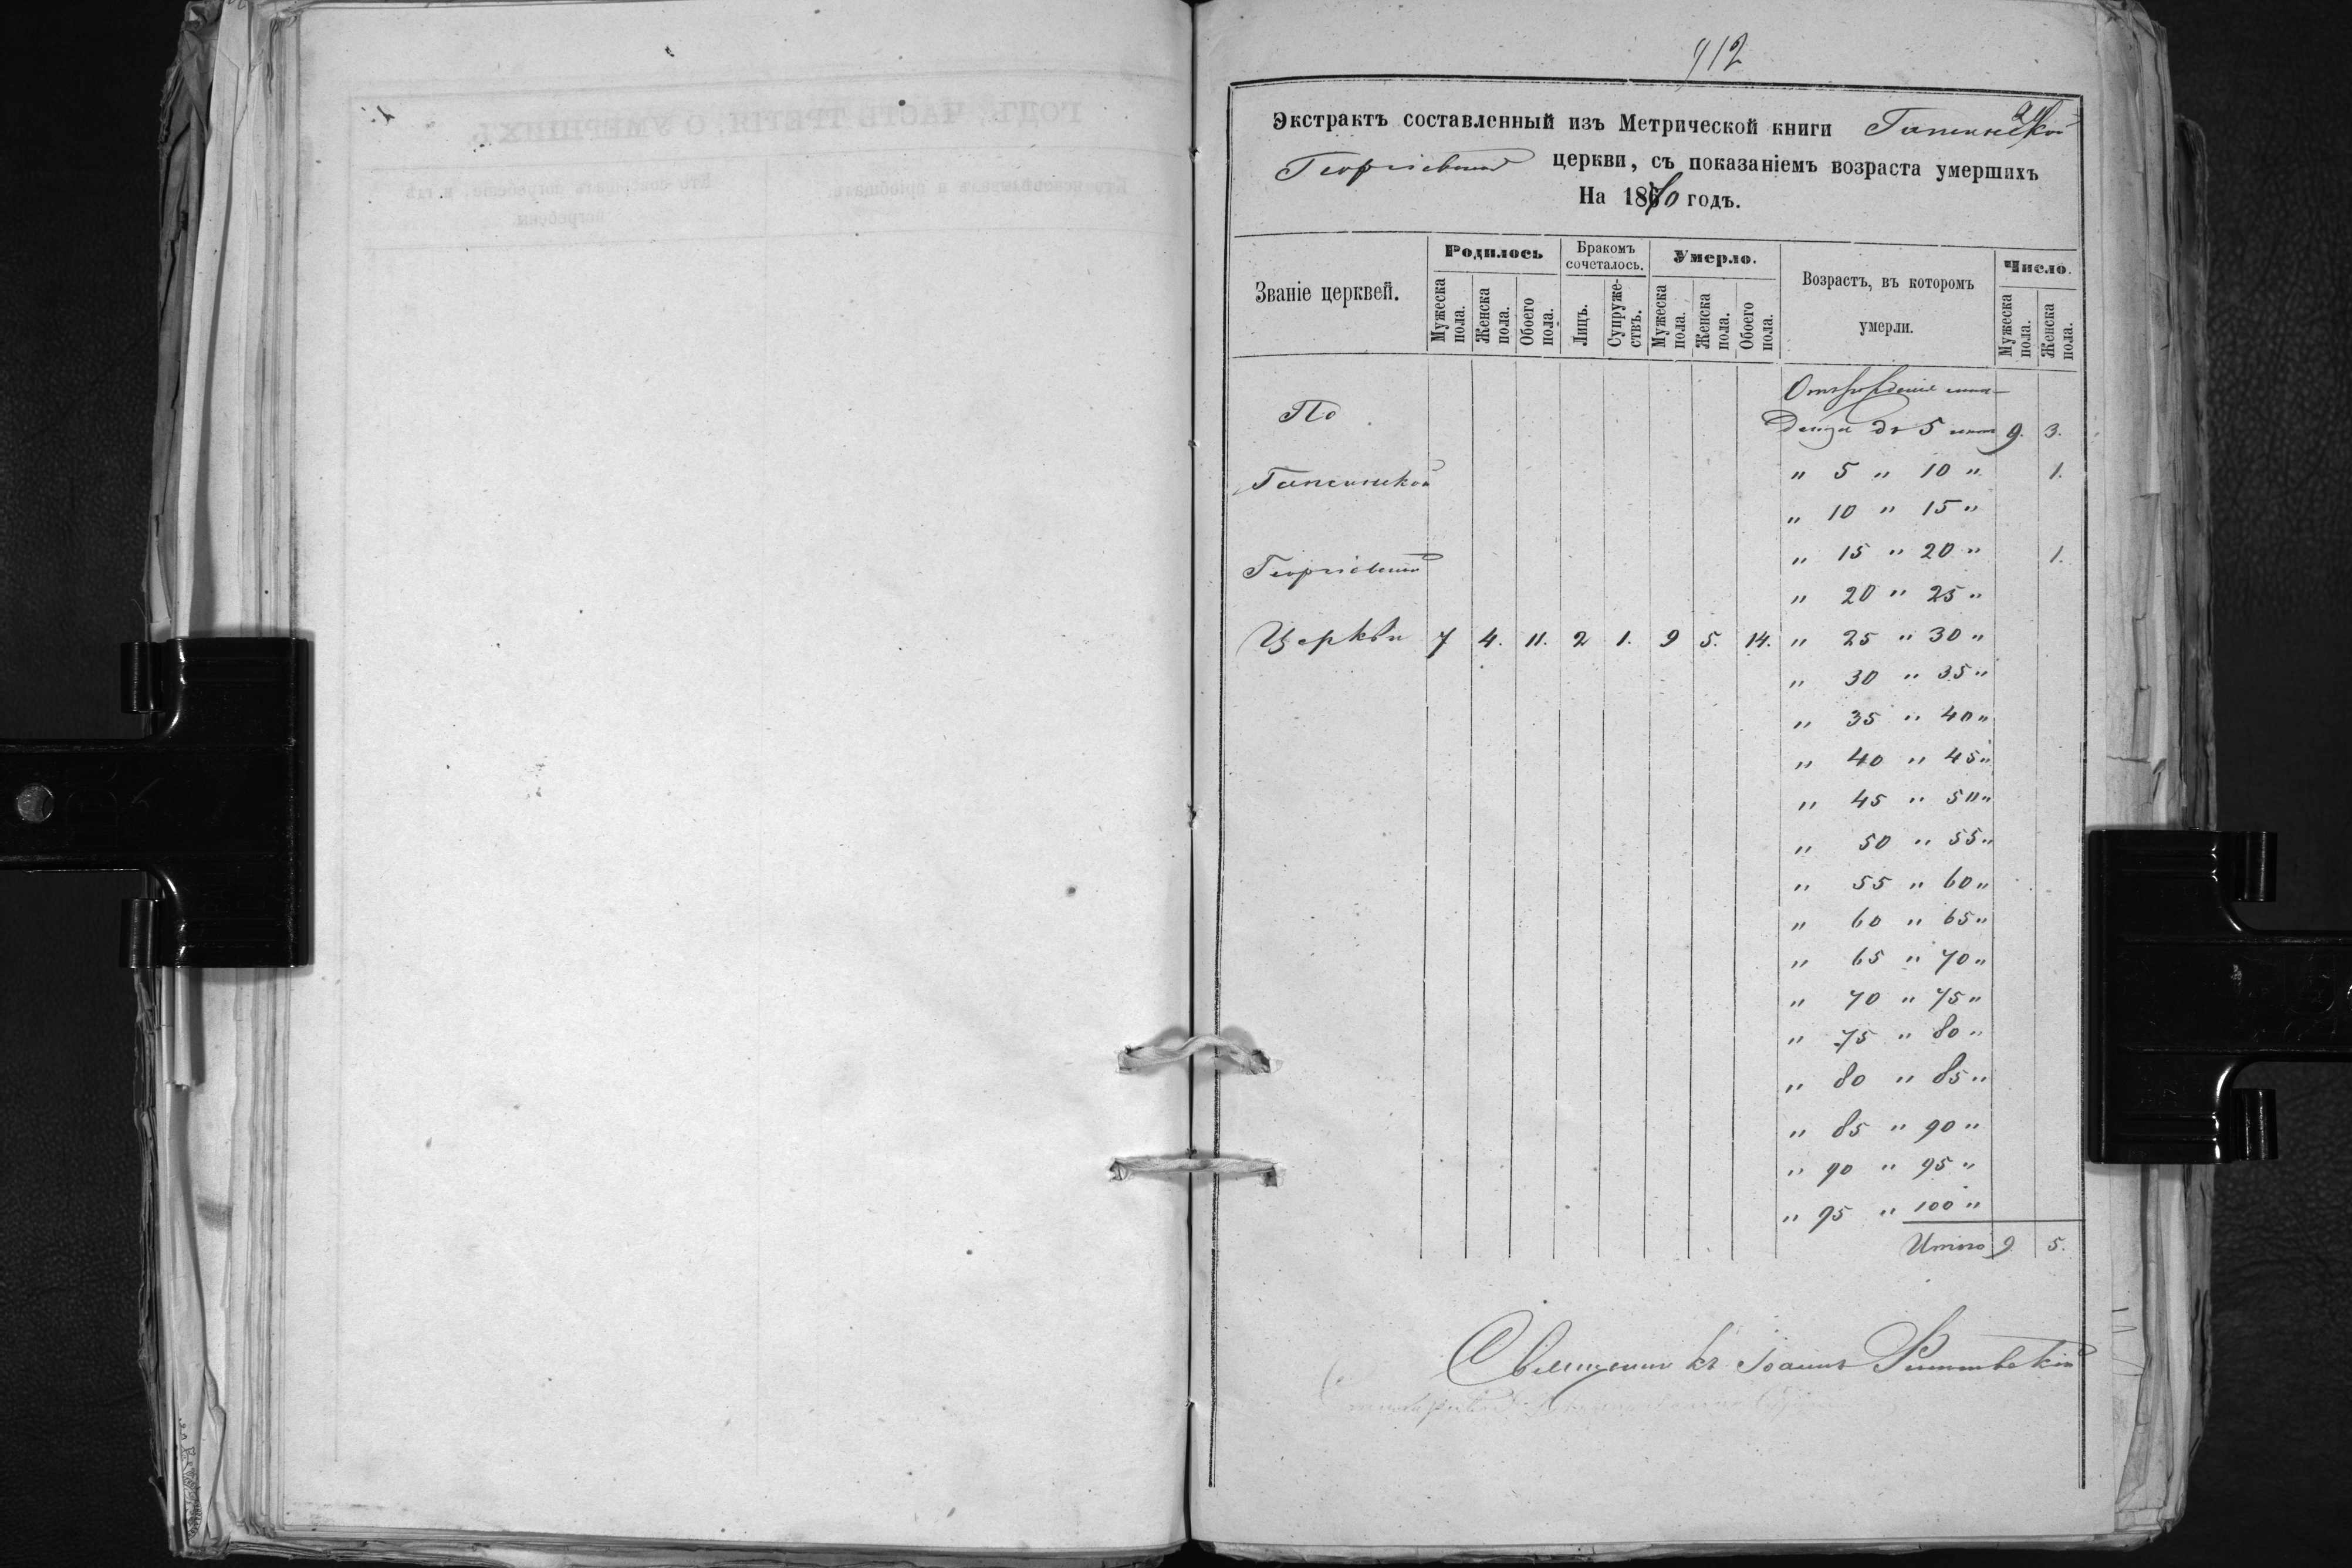 912
Экстрактъ составленный изъ Метрической книги Гапсинской
Георгіевской церкви, съ показаніемъ возраста умершихъ
На 1870 годъ.
Званіе церквей.
Родилось
Мужеска пола.
Женска пола.
Обоего пола.
Бракомъ сочеталось.
Лицъ.
Супруже-ствъ.
Умерло.
Мужеска пола.
Женска пола.
Обоего пола.
Возрастъ, въ которомъ
умерли.
Число.
Мужеска пола.
Женска пола.
По
Гапсинской
Георгіевской
Церкви 7 4. 11. 2 1. 9 5. 14.
Отъ рожденія мла-
денца до 5 лѣтъ 9. 3.
" 5 " 10 " 1.
" 10 " 15 "
" 15 " 20 " 1.
" 20 " 25 "
" 25 " 30 "
" 30 " 35 "
" 35 " 40 "
" 40 " 45 "
" 45 " 50 "
" 50 " 55 "
" 55 " 60 "
" 60 " 65 "
" 65 " 70 "
" 70 " 75 "
" 75 " 80 "
" 80 " 85 "
" 85 " 90 "
" 90 " 95 "
" 95 " 100 "
Итого 9 5.
Священникъ Іоаннъ
ГОДЪ, ЧАСТЬ ТРЕТІЯ, О УМЕРШИХЪ
Кто исповѣдывалъ и пріобщалъ.
Кто совершалъ погребеніе, и гдѣ
погребены